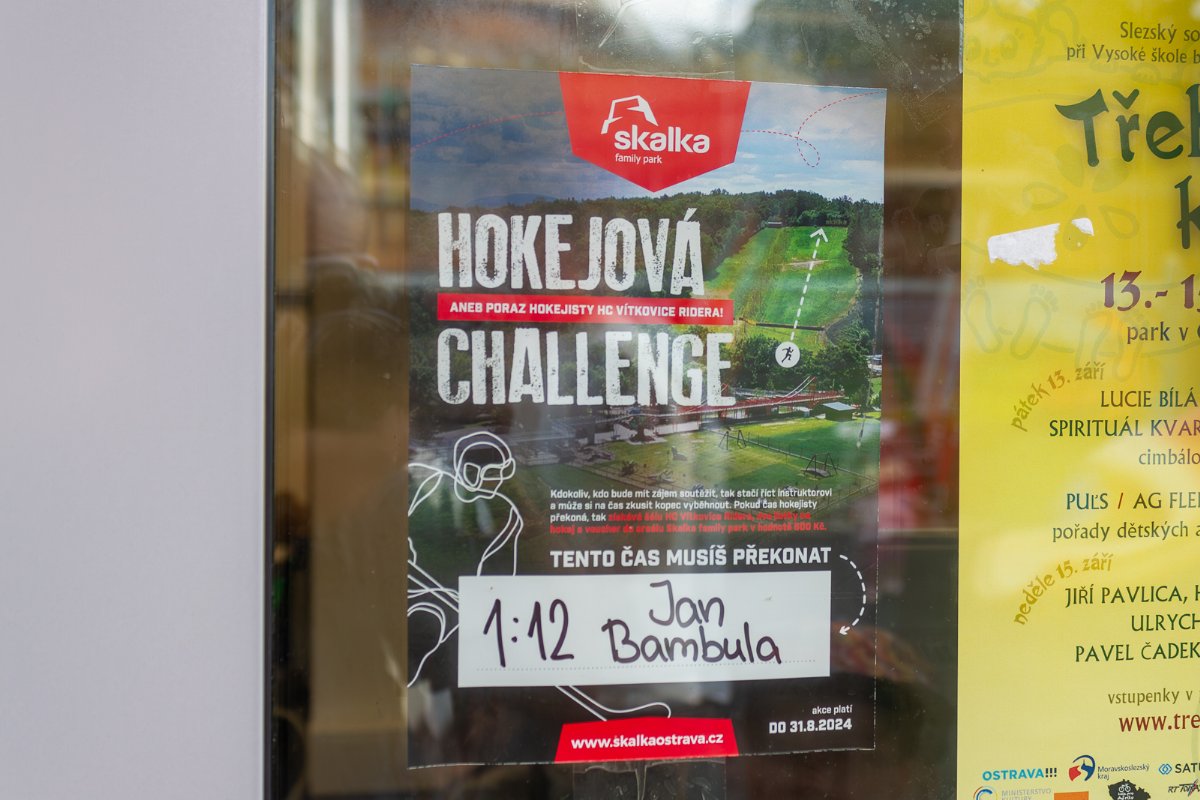 skalka
family park
HOKEJOVÁ
ANEB PORAZ HOKEJISTY HC VÍTKOVICE RIDERA!
CHALLENGE
Kdokoliv, kdo bude mít zájem soutěžit, tak stačí říct instruktorovi
a může si na čas zkusit kopec vyběhnout. Pokud čas hokejisty
překoná, tak získává šálu HC Vítkovice Ridera,
hokej a voucher do areálu Skalka family park v hodnotě 600 Kč.
TENTO ČAS MUSÍŠ PŘEKONAT
1:12 Jan
Bambula
akce platí
DO 31.8.2024
www.skalkaostrava.cz
Slezský
při Vysoké škole
13.-
park v
pátek 13. září
LUCIE BÍLÁ
SPIRITUÁL
PUĽS / AG
pořady dětských
neděle 15. září
JIŘÍ PAVLICA,
PAVEL
vstupenky v
OSTRAVA!!!
Moravskoslezský
kraj
MINISTERSTVO
KULTURY